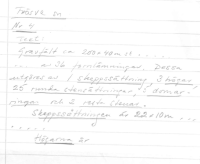 No 4
Text:
Gravfält ca 200x40m ...
av 36 fornlämningar. Dessa
utgöres av 1 skeppssättning, 3 högar
25 runda stensättningar, 5 domar-
ringar och 2 resta stenar.
Skeppssättningen är 22x10m ...
Högarna är